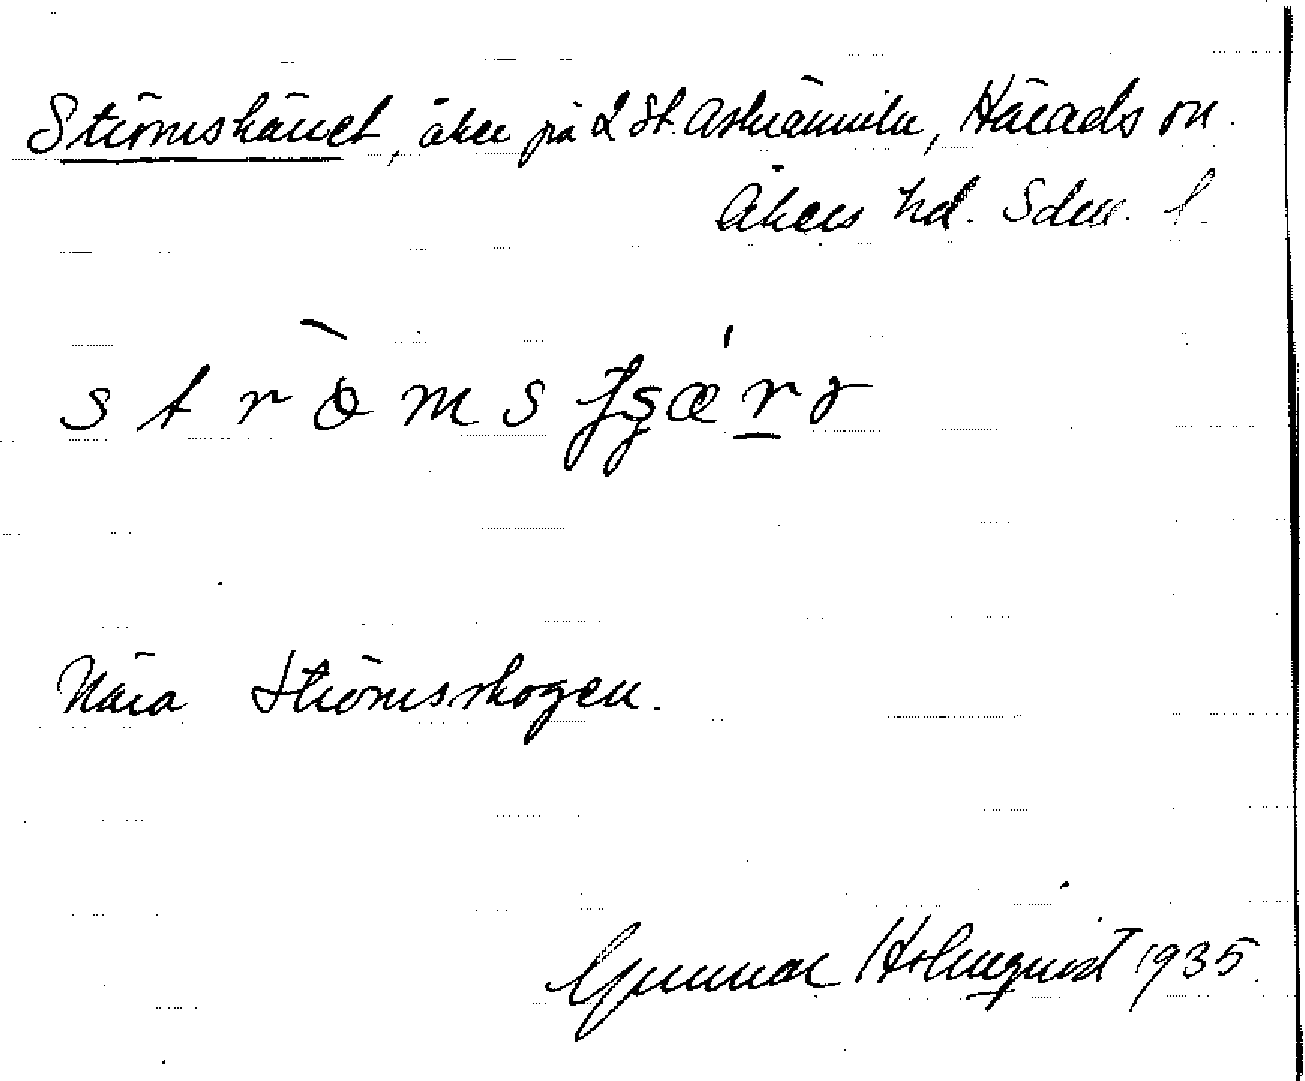 Strömskärret, åker på 2 St. Askrämmiln, Härads sn.
Åkers hd. Sdm. l.
strö̀msʃʂǽrr
Nära Strömsskogen.
Gunnar Holmqvist 1935.